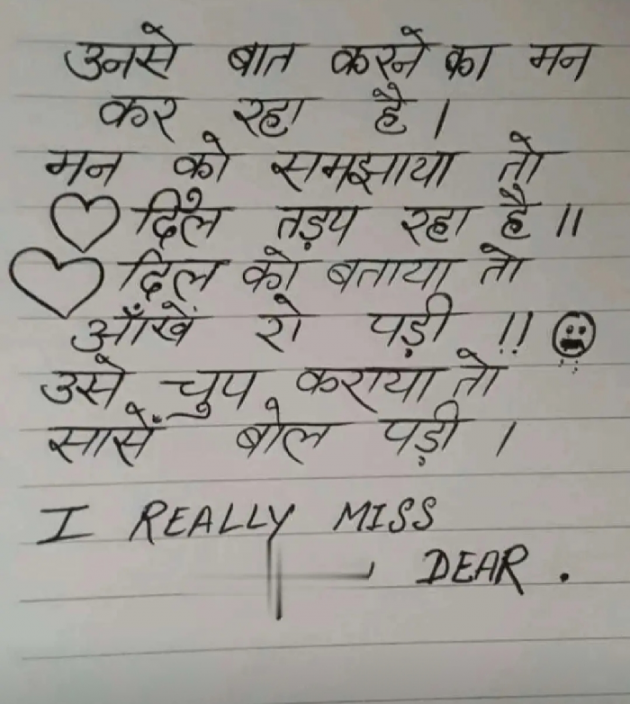 उनसे बात करने का मन
कर रहा है।
मन को समझाया तो
दिल तड़प रहा है॥
दिल को बताया तो
आँखें रो पड़ी !!
उसे चुप कराया तो
सासें बोल पड़ी।
I REALLY MISS
DEAR.